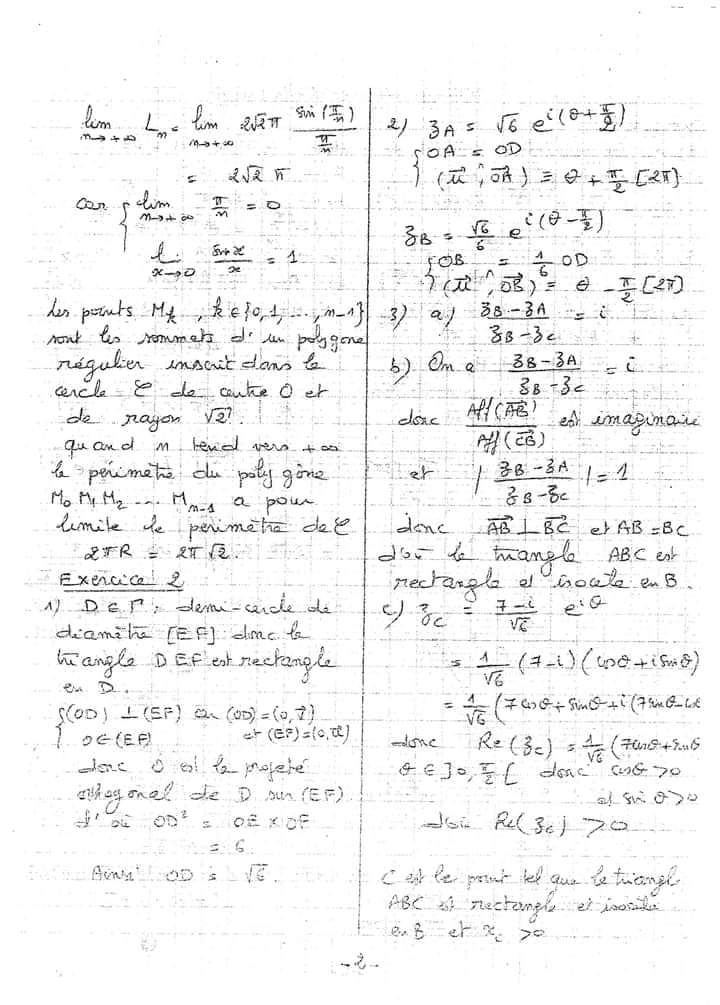 lim L_n = lim 2√2π sin(π/n) / (π/n)
n→+∞ n→+∞
= 2√2 π
car { lim π/n = 0
n→+∞
lim sin x / x = 1
x→0
Les points M_k, k ∈ {0,1,...,n-1}
sont les sommets d'un polygone
régulier inscrit dans le
cercle C de centre O et
de rayon √2.
quand n tend vers +∞
le périmètre du polygône
M₀ M₁ M₂ ... M_{n-1} a pour
limite le périmètre de C
2πR = 2π√2.
Exercice 2
1) D ∈ Γ : demi-cercle de
diamètre [EF] donc le
triangle DEF est rectangle
en D.
{ (OD) ⊥ (EF) car (OD) = (O, v⃗)
O ∈ (EF) et (EF) = (O, u⃗)
donc O est le projeté
orthogonal de D sur (EF)
d'où OD² = OE × OF
= 6
Ainsi OD = √6.
2) z_A = √6 e^{i(θ+π/2)}
{ OA = OD
(u⃗ ^, OA⃗) ≡ θ + π/2 [2π]
z_B = √6/6 e^{i(θ-π/2)}
{ OB = 1/6 OD
(u⃗ ^, OB⃗) = θ - π/2 [2π]
3) a) (z_B - z_A) / (z_B - z_C) = i
b) On a (z_B - z_A) / (z_B - z_C) = i
donc Aff(AB⃗) / Aff(CB⃗) est imaginaire
et | (z_B - z_A) / (z_B - z_C) | = 1
donc AB⃗ ⊥ BC⃗ et AB = BC
d'où le triangle ABC est
rectangle et isocele en B.
c) z_C = (7-i)/√6 e^{iθ}
= 1/√6 (7-i)(cosθ + i sinθ)
= 1/√6 (7cosθ + sinθ + i(7sinθ - cos
donc Re(z_C) = 1/√6 (7cosθ + sinθ
θ ∈ ]0, π/2[ donc cosθ > 0
et sin θ > 0
d'où Re(z_C) > 0
C est le point tel que le triangl
ABC est rectangle et isocèle
en B et x_C > 0
- 2 -